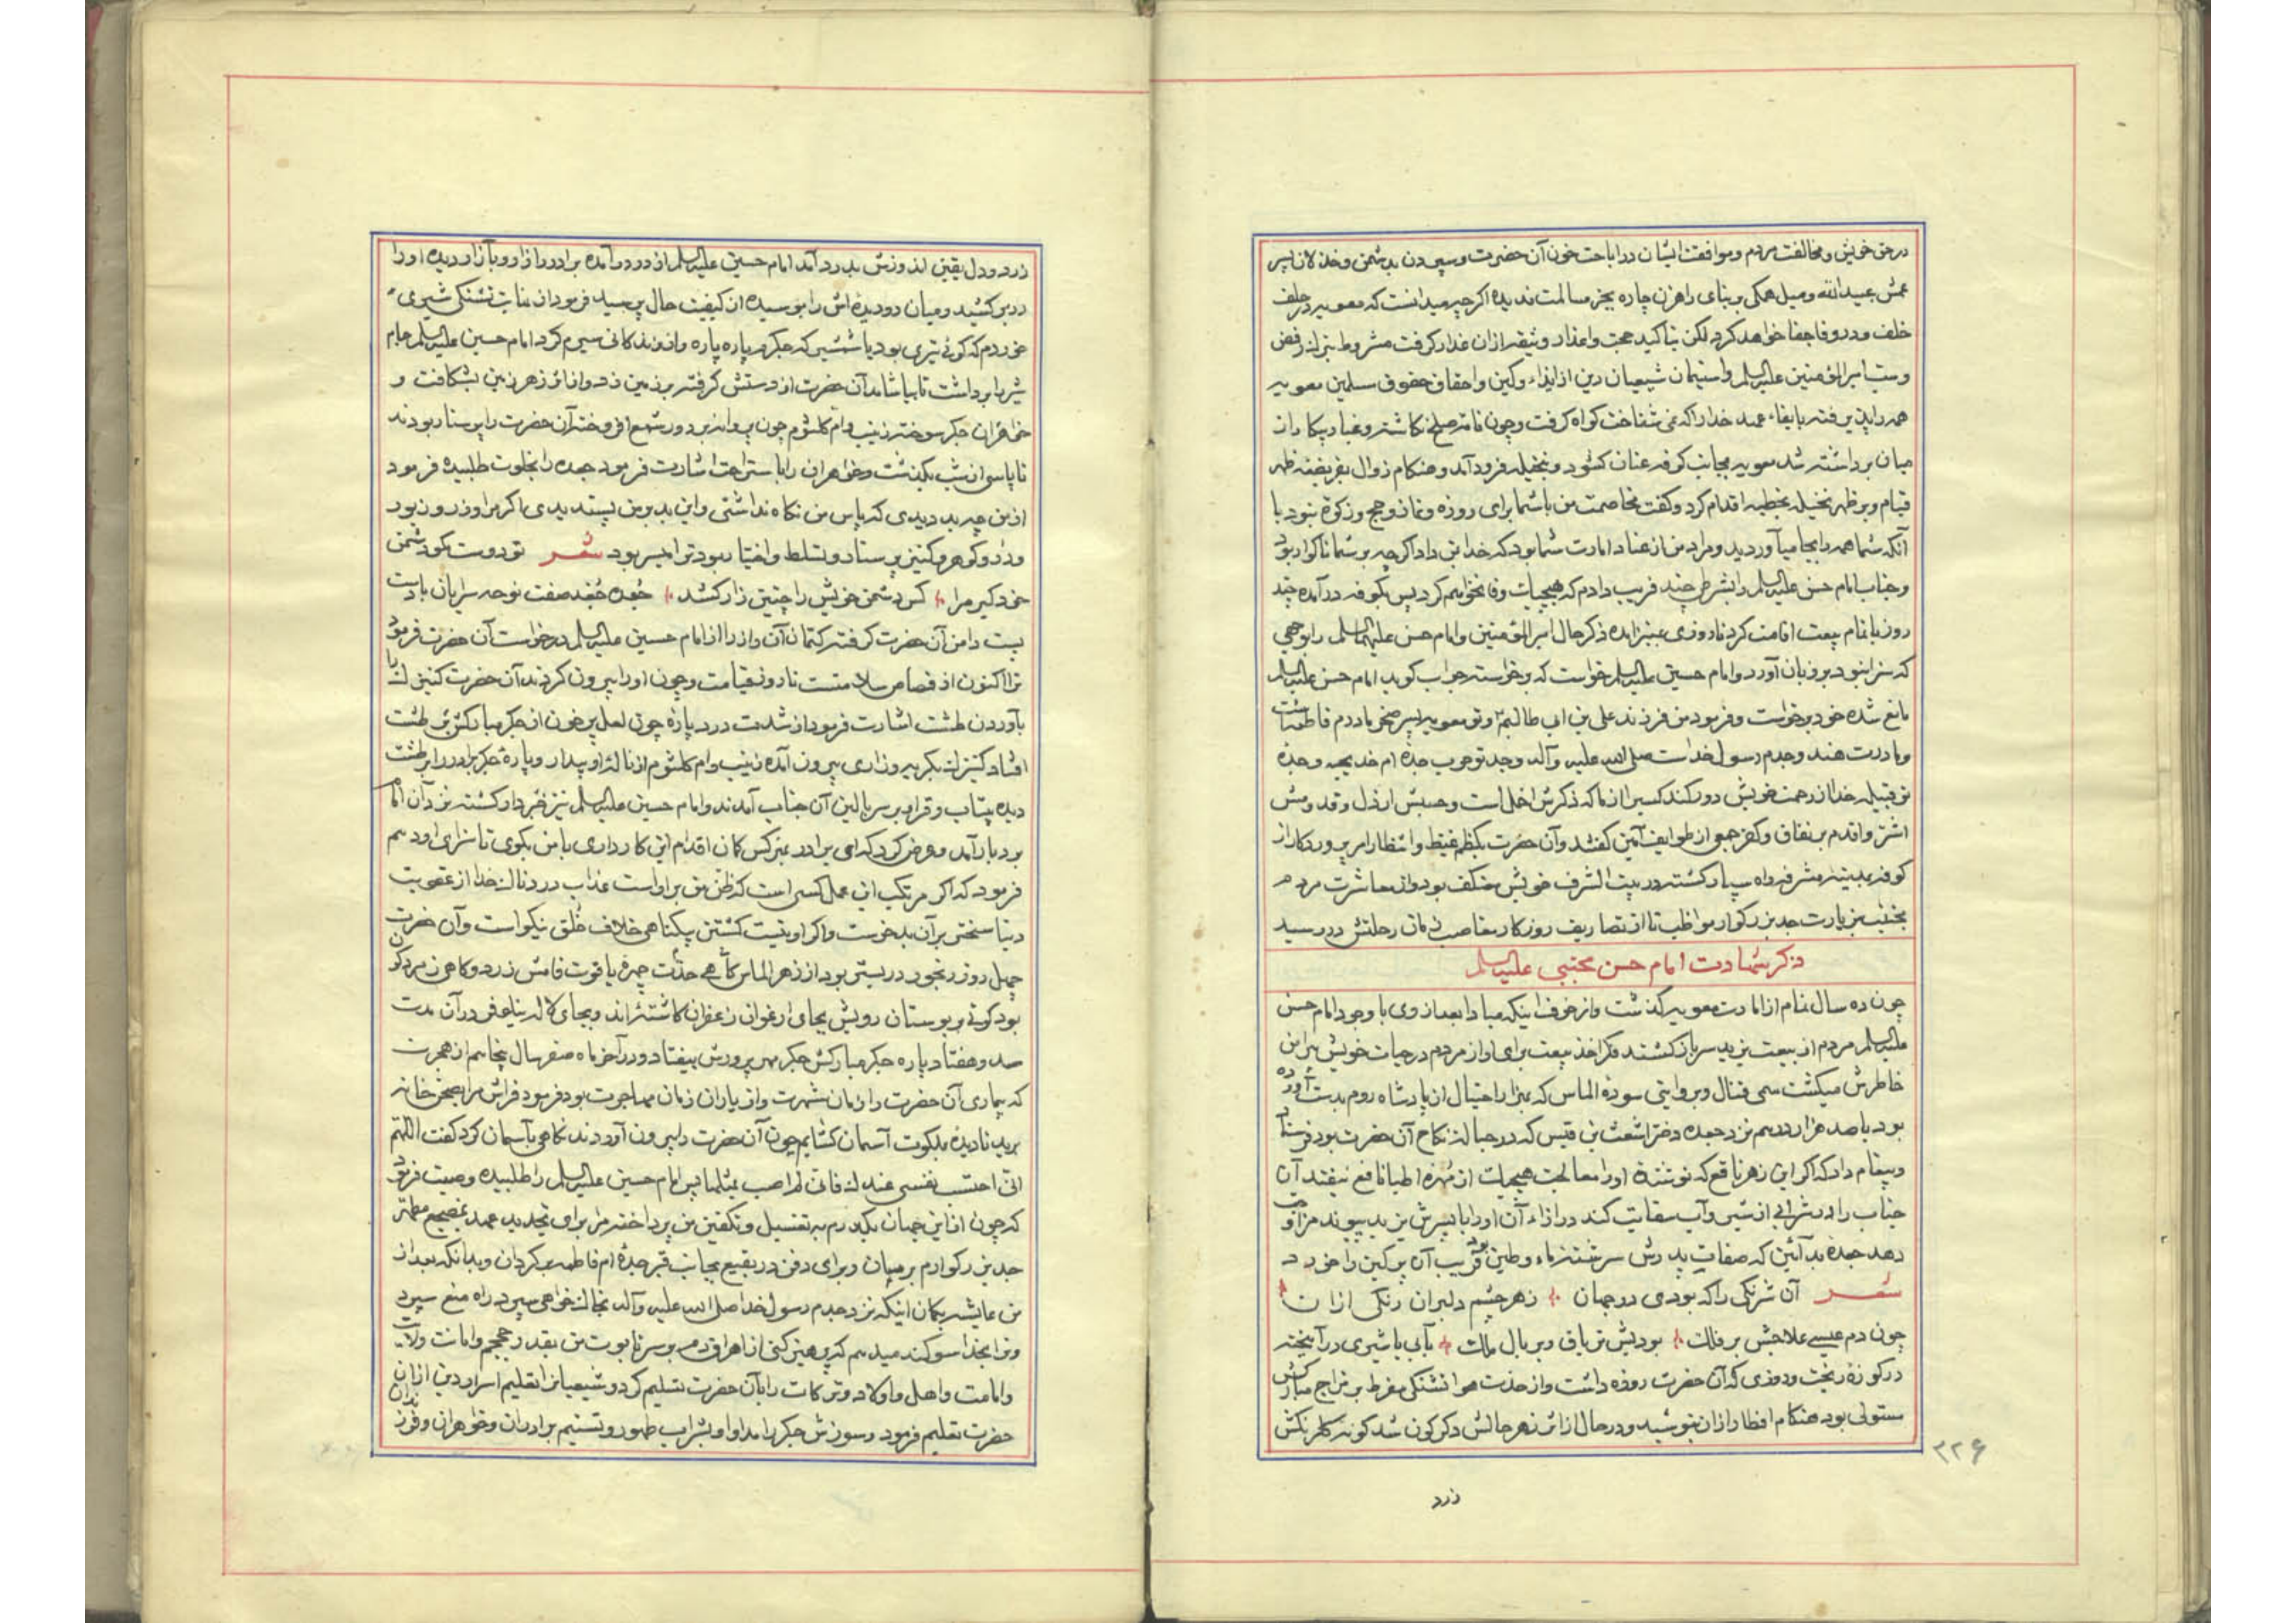 در حق خویش و مخالفت مردم و موافقت ایشان در اباحت خون آن حضرت و سپردن بدشمن و خذلان پسر
عمش عبیدالله و میل همکی وبنای راهزن چاره بجز مسالمت ندیده اکرچه میدانست که معویه در حلف
خلف و در وفا جفا خواهد کرد لکن بتاکید حجت و اعذار وثیقه ازان غدار کرفت مشروط بترک رفض
وسب امیرالمؤمنین علیه السلم واستیمان شیعیان دین از ایذاء وکین واحقاق حقوق مسلمین معویه
همه را پذیرفته بایفاء عهد خدا را که نمی شناخت کواه کرفت وچون نامه صلح نکاشته و غبار پیکار از
میان برداشته شد معویه بجانب کوفه عنان کشود و بنخیله فرود آمد و هنکام زوال بفریضه ظهر
قیام و بر ظهر نخیله بخطبه اقدام کرد و کفت مخاصمت من با شما برای روزه و نماز و حج و زکوة نبود با
آنکه شما همه را بجا میآوردید و مراد من از عناد امارت شما بود که خدا بمن داد اکرچه بر شما ناکوار بود
وجناب امام حسن علیه السلم را بشرطی چند فریب دادم که بهیچیک وفا نخواهم کرد پس بکوفه در آمده چند
روز باتمام بیعت اقامت کرد تا روزی بمنبر آمده ذکر حال امیرالمؤمنین وامام حسن علیهما السلم را بوجهی
که سزا نبود بر زبان آورد و امام حسین علیه السلم خواست که برخواسته جواب کوید امام حسن علیه السلم
مانع شده خود برخواست و فرمود من فرزند علی بن ابی طالبم و تو معویه پسر صخر مادرم فاطمه است
ومادرت هند وجدم رسول خداست صلی الله علیه وآله وجد تو حرب جده ام خدیجه وجده
تو قتیله خدا از رحمت خویش دور کند کسیرا از ما که ذکرش اخمل است وحسبش ارذل و قدومش
اشر واقدم بر نفاق وکفر جمعی از طوایف آمین کفتند وآن حضرت بکظم غیظ وانتظار امر پروردکار از
کوفه بمدینه مشرفه راه سپار کشته در بیت الشرف خویش معتکف بود واز معاشرت مردم
بزیارت جد بزرکوار مواظب تا از تصاریف روزکار زمان رحلتش در رسید
ذکر شهادت امام حسن مجتبی علیه السلم
چون ده سال تمام از امارت معویه کذشت و از خوف اینکه مبادا بعد از وی با وجود امام حسن
علیه السلم مردم از بیعت یزید سر باز کشند فکر اخذ بیعت برای او از مردم در حیات خویش پیرامن
خاطرش میکشت سمی قتال و بروایتی سوده الماس که بهزار احتیال از پادشاه روم بدست آورده
بود با صد هزار درهم نزد جعده دختر اشعث بن قیس که در حباله نکاح آن حضرت بود فرستاد
وپیغام داد که اکر این زهر ناقع که نوشنده او را معالجت هیچیک از مهره اطبا نافع نیفتد آن
جناب را در شرابی از شیر و آب سقایت کند در ازاء آن او را با پسرش یزید پیوند مزاوجت
دهد جعده بد آئین که صفات پدرش سرشته ماء وطین بود فریب آن پر کین را خورد
شعر آن شرنکی را که بودی در جهان زهر چشم دلبران رنکی ازان
چون دم عیسی علاجش بر فلک بودیش تریاق و بر بال ملک بآبی یا شیری در آمیخته
در کوزه ریخت و روزی که آن حضرت روزه داشت و از حدت هوا تشنکی مفرط بر مزاج مبارکش
مستولی بود هنکام افطار ازان بنوشید و در حال از اثر زهر حالش دکرکون شد کونه کلرنکش
زرد
۲۲۶
زرد و دل یقین اندوزش بدرد آمد امام حسین علیه السلم از در در آمده برادر را زار و بآزار دیده او را
در بر کشید و میان دو دیده اش را بوسیده از کیفیت حال پرسید فرمود از غایت تشنکی شیری
خوردم که کوئی تیری بود یا شمشیر که جکرم پاره پاره واز زندکانی سیرم کرد امام حسین علیه السلم جام
شیر را برداشت تا بیاشامد آن حضرت از دستش کرفته بر زمین زد و از اثر زهر زمین بشکافت و
خواهران جکر سوخته زینب وام کلثوم چون پروانه بر دور شمع افروخته آن حضرت را پرستار بودند
تا پاسی از شب بکذشت و خواهران را باستراحت اشارت فرمود جعده را بخلوت طلبیده فرمود
از من چه بد دیدی که پاس من نکاه نداشتی و این بد بر من پسندیدی اکر مراد زر و زیور بود
و در و کوهر و کنیز و پرستار و تسلط و اختیار بود ترا میسر بود شعر تو دوست مکو دشمن
خود کیر مرا کس دشمن خویش را چنین زار کشد جعده جغد صفت نوحه سرایان بادست
بست دامن آن حضرت کرفته کتمان آن راز را از امام حسین علیه السلم درخواست آن حضرت فرمود
ترا اکنون از قصاص سلامتست تا روز قیامت و چون او را بیرون کردند آن حضرت کنیزک را
بآوردن طشت اشارت فرمود از شدت درد پاره چون لعل پر خون از جکر مبارکش بر طشت
افتاد کنیزک بکریه وزاری بیرون آمده زینب وام کلثوم از ناله او بیدار و پاره جکر برادر را بر طشت
دیده بیتاب و قرار بر سر بالین آن جناب آمدند و امام حسین علیه السلم نیز خبردار کشته نزد آن امام
بردبار آمد و عرض کرد که ای برادر بهر کس کمان اقدام این کار داری با من بکوی تا سزای او دهم
فرمود که اکر مرتکب این عمل کسی است که ظن من بر اواست عذاب دردناک خدا از عقوبت
دنیا سختر برآن بدخوست و اکر او نیست کشتن بیکناهی خلاف خلق نیکو است و آن حضرت
چهل روز رنجور در بستر بود از زهر الماس کاهی چهره یاقوت فامش زرد و کاهی زمردکون
بود کوئی بر بوستان رویش بجای ارغوان زعفران کاشته اند و بجای لاله نیلوفر در آن مدت
صد و هفتاد پاره جکر مبارکش جکر مهر پرورش بیفتاد و در آخر ماه صفر سال پنجاهم از هجرت
که بیماری آن حضرت را زمان شهرت و از یاران زمان مهاجرت بود فرمود فراش مرا بصحن خانه
برید تا دیده بملکوت آسمان کشایم چون آن حضرت را بیرون آوردند نکاهی بآسمان کرد کفت اللهم
انی احتسب نفسی عندک فانی لم اصب بمثلها پس امام حسین علیه السلم را طلبیده وصیت فرمود
که چون از این جهان بکذرم به تغسیل و تکفین من پرداخته مرا برای تجدید عهد بمضجع مطهر
جد بزرکوارم برسان و برای دفن در بقیع بجانب قبر جده ام فاطمه برکردان و بدانکه بعد از
من عایشه بکمان اینکه نزد جدم رسول خدا صلی الله علیه وآله بخاک خواهی سپرد راه منع سپرد
و ترا بخدا سوکند میدهم که پرهیز کنی از اهراق دم بر سر تابوت من بقدر حجم و امانت ولایت
و امامت و اهل و اولاد و ترکات را بآن حضرت تسلیم کرد و شیعیانرا بتعلیم اسرار دین ازان
حضرت تعلیم فرمود و سوزش جکر را مداوا و بشراب طهور و تسنیم برادران و خواهران و فرزندان